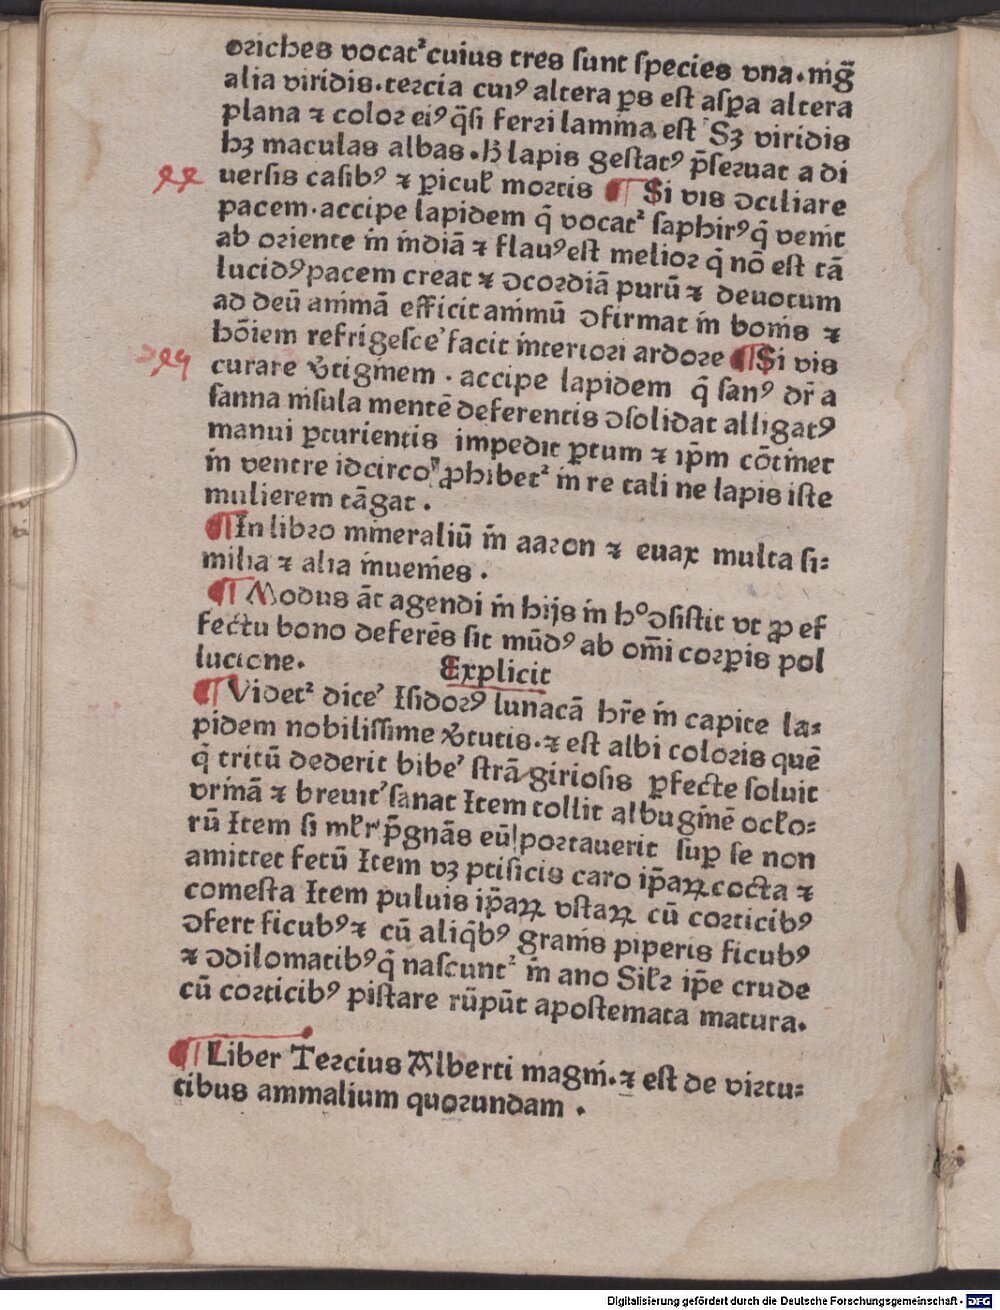 oriches vocatᷣ cuius tres sunt species vna.nig̃
alia viridis.tercia cuiꝰ altera ꝑs est aspa altera
plana ⁊ color eiꝰ q̃si ferri lamina est Sꝫ viridis
hꝫ maculas albas.H̃ lapis gestatꝰ p̃seruat a di
uersis casibꝰ ⁊ ꝑicuł mortis ¶ Si vis ↄciliare
pacem.accipe lapidem q̃ vocatᷣ saphirꝰ q̃ venit
ab oriente in indiã ⁊ flauꝰ est melior q̃ nõ est tã
lucidꝰ pacem creat ⁊ ↄcordiã purũ ⁊ deuotum
ad deũ animã efficit animũ ↄfirmat in bonis ⁊
hõiem refrigesce᾽ facit interiori ardore ¶ Si vis
curare v̾tiginem . accipe lapidem q̃ sanꝰ dr̃ a
sanna insula mentẽ deferentis ↄsolidat alligatꝰ
manui ꝑturientis impedit ꝑtum ⁊ ip̃m cõtinet
in ventre idcirco ꝓhibetᷣ in re tali ne lapis iste
mulierem tãgat .
¶ In libro mineraliũ in aaron ⁊ euax multa si⸗
milia ⁊ alia inuenies .
¶ Modus ãt agendi in hijs in hº ↄsistit vt ꝓ ef
fectu bono deferẽs sit mũdꝰ ab om̃i corꝑis pol
lucione.
Explicit
¶ Videtᷣ dice᾽ Isidorꝰ lunacã hr̃e in capite la⸗
pidem nobilissime v̾tutis.⁊ est albi coloris quẽ
q̃ tritũ dederit bibe᾽ strãgiriosis ꝑfecte soluit
vrinã ⁊ breuit᾽ sanat Item tollit albuginẽ ocło⸗
rũ Item si młr p̃gnãs eũ portauerit suꝑ se non
amittet fetũ Item vꝫ ptisicis caro ip̃aꝝ cocta ⁊
comesta Item puluis ip̃aꝝ vstaꝝ cũ corticibꝰ
ↄfert ficubꝰ ⁊ cũ aliq̃bꝰ granis piperis ficubꝰ
⁊ ↄdilomatibꝰ q̃ nascuntᷣ in ano Siłr ip̃e crude
cũ corticibꝰ pistare rũpũt apostemata matura.
¶ Liber Tercius Alberti magni.⁊ est de virtu⸗
tibus animalium quorundam .
Digitalisierung gefördert durch die Deutsche Forschungsgemeinschaft - DFG